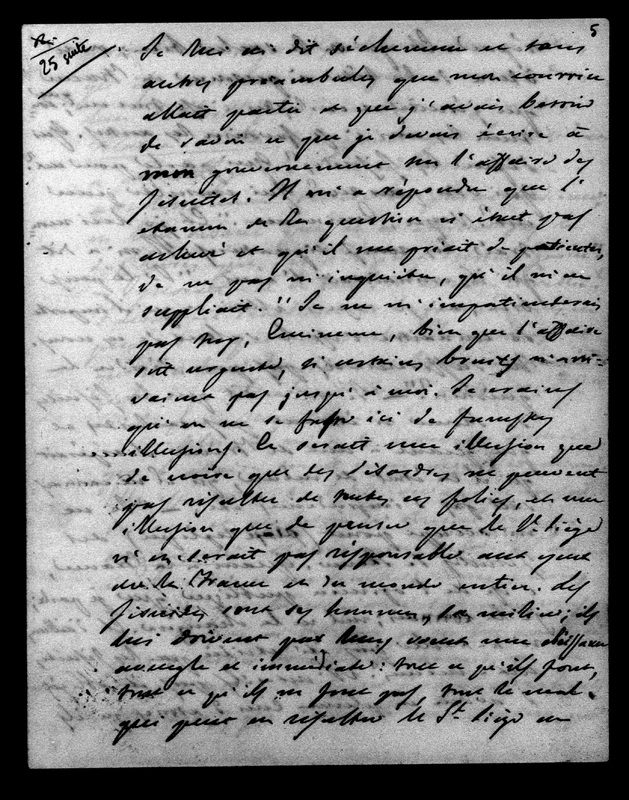 5
25 suite
Je lui ai dit sèchement et sans
autres préambules que mon courrier
allait partir et que j'avais besoin
de savoir ce que je devais écrire à
mon gouvernement sur l'affaire des
Jésuites. Il m'a répondu que l'
examen de la question n'était pas
achevé et qu'il me priait de patienter,
de ne pas m'inquiéter, qu'il m'en
suppliait." Je ne m'impatienterais
pas trop, Eminence, bien que l'affaire
soit urgente, si certains bruits n'arri-
vaient pas jusqu'à moi. Je crains
qu'on ne se fasse ici de funestes
illusions. Ce serait une illusion que
de croire que des désordres ne peuvent
pas résulter de toutes ces folies, et une
illusion que de penser que le St Siège
n'en serait pas responsable aux yeux
de la France et du monde entier. Les
Jésuites sont ses hommes, sa milice; ils
lui doivent par leurs vœux une obéissance
aveugle et immédiate: tout ce qu'ils font,
tout ce qu'ils ne font pas, tout le mal
qui peut en résulter le St Siège en